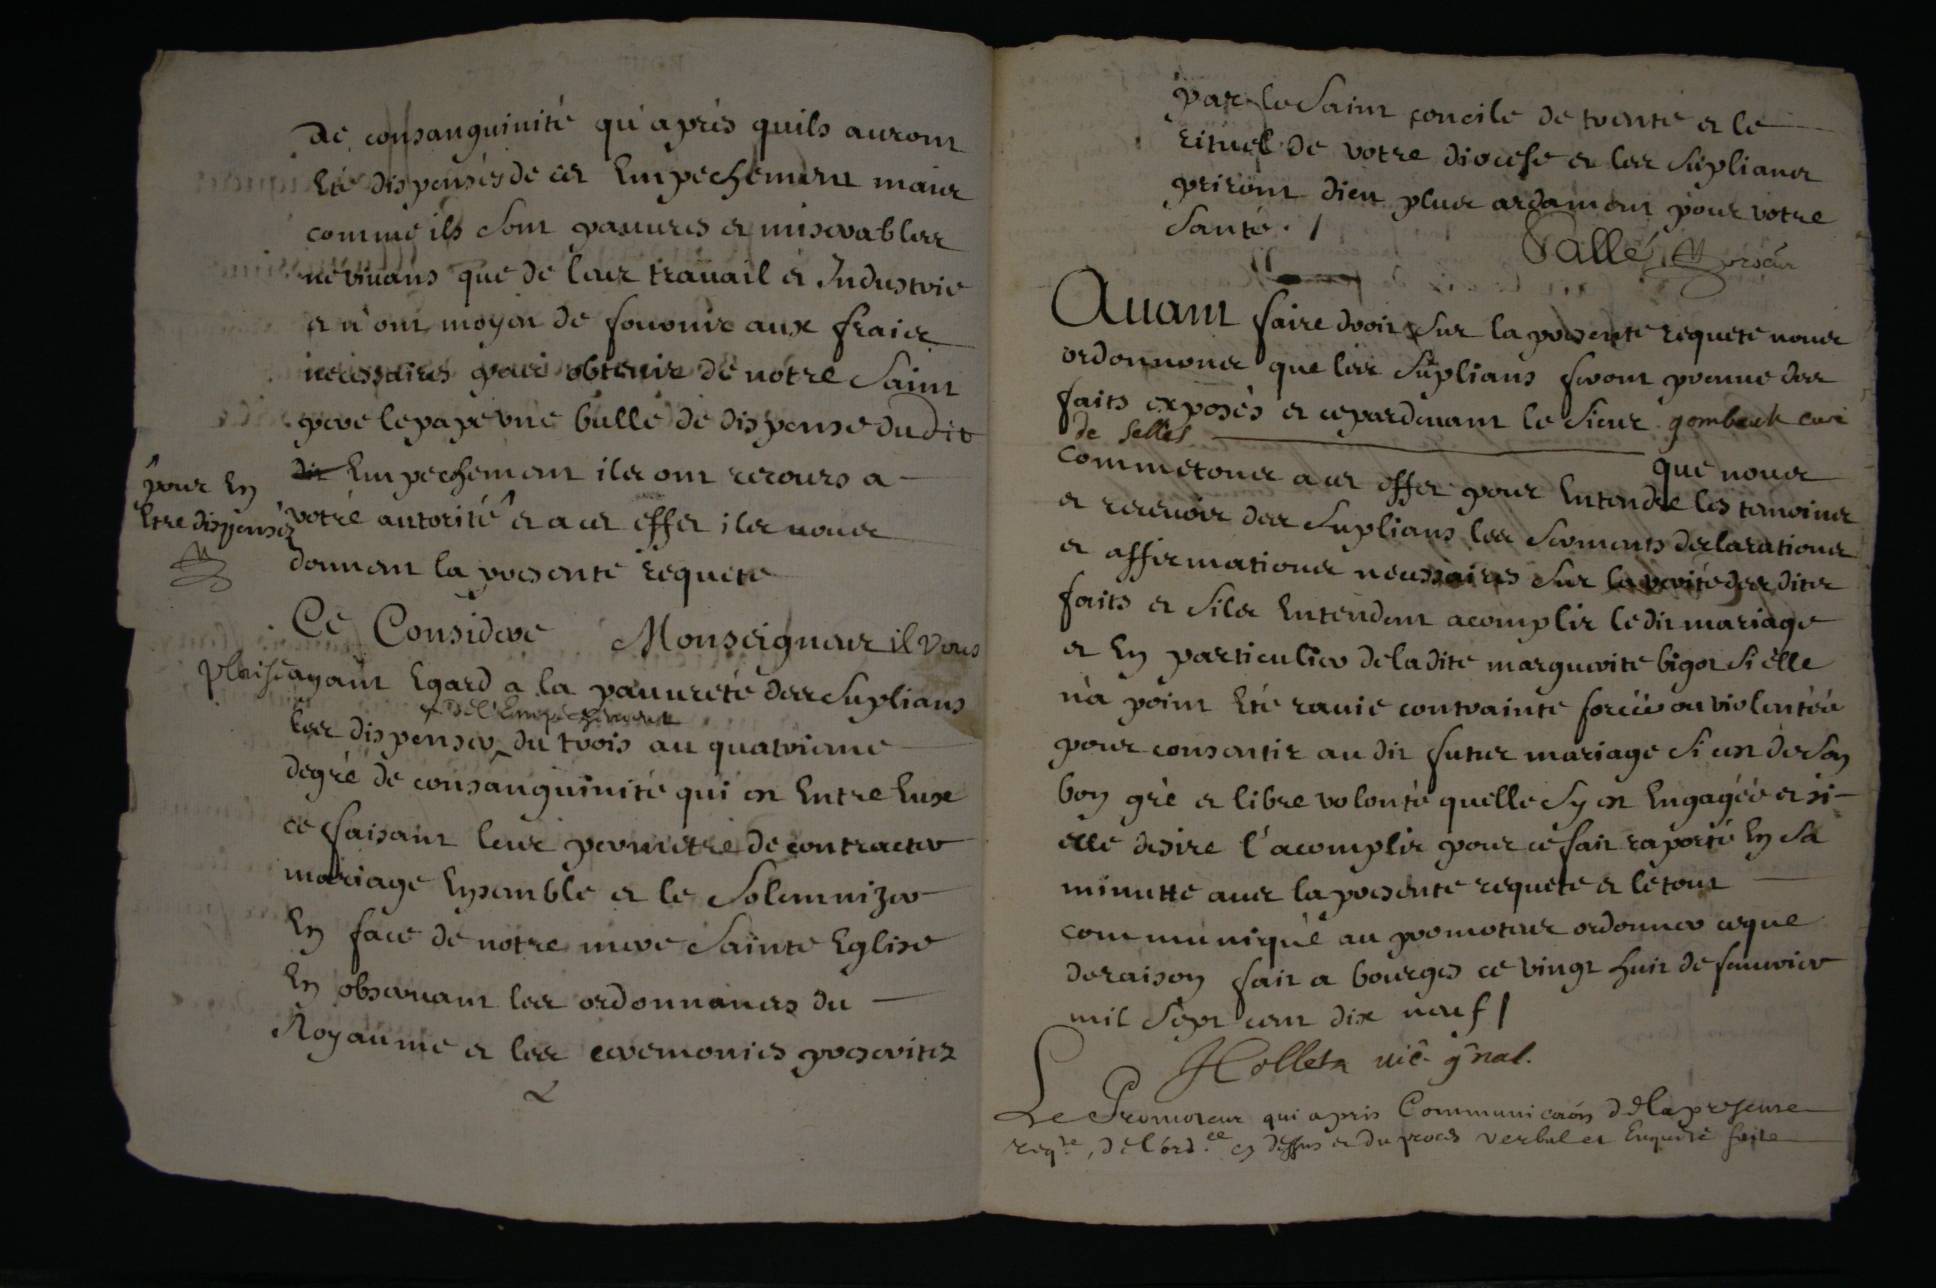 de consanguinité qu'aprés quils auront
été dispensés de cet Empechement mais
comme ils sont pauures et miserables
ne viuans que de leur trauail et Industrie
et n'ont moyen de fournir aux frais
necessaires pour obtenir de nôtre Saint
pere le pape vne bulle de dispense dudit
dit Empechement ils ont recours a
votre autorité et a cet effet ils nous
pour En
Etre dispensez
donnent la presente requete
Ce Consideré Monseigneur il vous
plaise ayant Egard a la pauureté des Suplians
de l'Empechement
les dispenser du trois au quatrieme
degré de consanguinité qui est Entre Eux
ce faisant leur permetre de contracter
mariage Ensemble et le Solemnizer
En face de notre mere Sainte Eglise
En obseruant les ordonnances du
Royaume et les ceremonies prescrites
par le Saint concile de trente et le
rituel de votre diocese et les Suplians
priront dieu plus ardament pour votre
Santé. /
Vallé
Auant faire droit Sur la presente requete nous
ordonnons que les Suplians feront preuue des
faits exposés et ce pardeuant le Sieur gombault curé
de Selles que nous
commetons a cet effet pour Entendre les temoins
et receuoir des Suplians les Serments declarations
et affirmations necessaires Sur la verité des dites
faits et Sils Entendent acomplir le dit mariage
et En particulier de ladite marguerite bigot Si elle
n'a point été rauie contrainte forcée ou violentée
pour consentir au dit futur mariage Si cest de Son
bon gré et libre volonté quelle Sy est Engagée et si
elle desire l'acomplir pour ce fait raporté En Sa
minutte auec la presente requete et le tout
communiqué au promoteur ordonner ce que
de raison fait a bourges ce vingt huit de januier
mil Sept cent dix neuf /
Hollet vic gnal.
Le Promoteur qui apris Communicaon de la presente
reqte, de l'ordce cy dessus et du proces verbal et Enquete faite